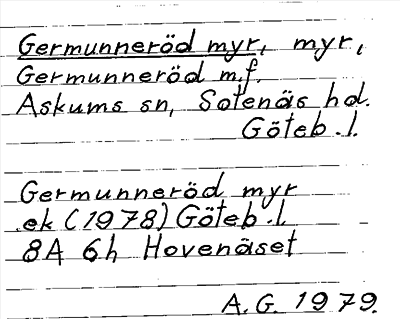 Germunneröd myr, myr,
Germunneröd m.f.
Askums sn, Sotenäs hd.
Göteb. l.
Germunneröd myr
ek (1978) Göteb. l.
8A 6h Hovenäset
A. G. 1979.